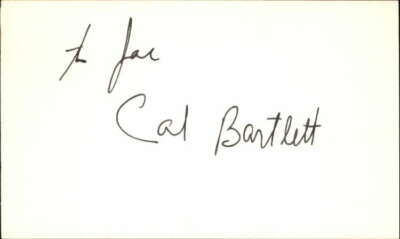 to Joe
Cal Bartlett